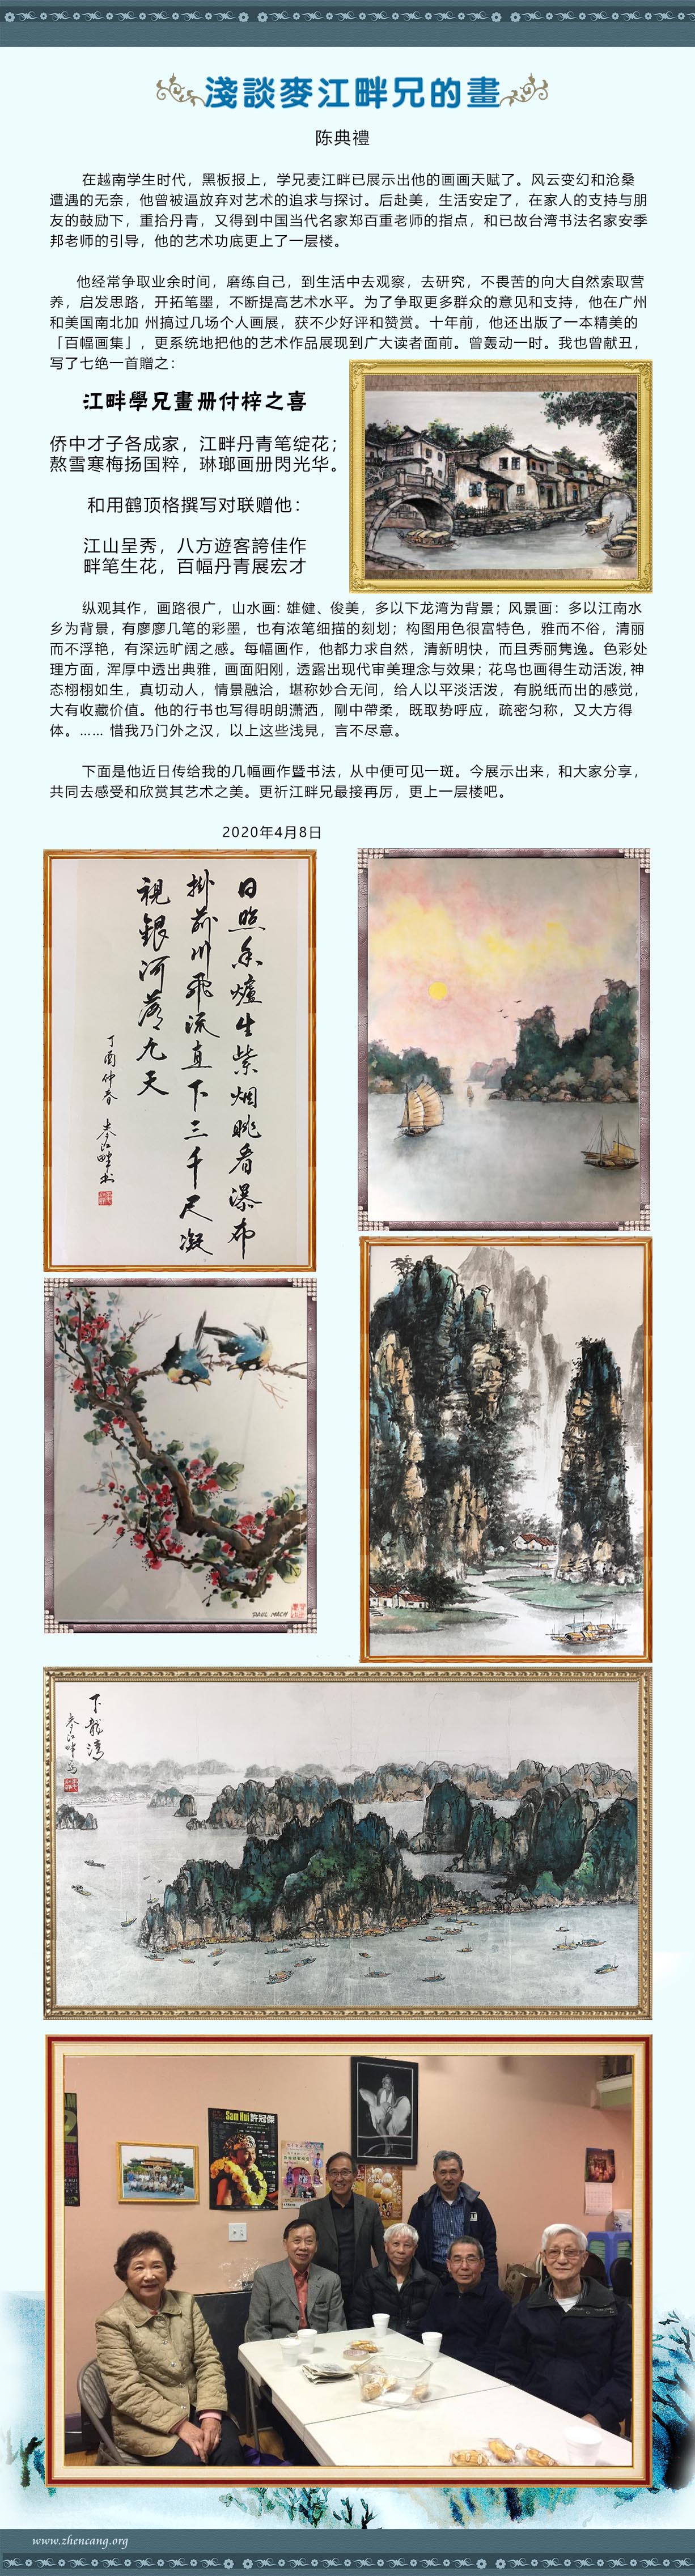 淺談麥江畔兄的畫
陈典禮
在越南学生时代，黑板报上，学兄麦江畔已展示出他的画画天赋了。风云变幻和沧桑
遭遇的无奈，他曾被逼放弃对艺术的追求与探讨。后赴美，生活安定了，在家人的支持与朋
友的鼓励下，重拾丹青，又得到中国当代名家郑百重老师的指点，和已故台湾书法名家安季
邦老师的引导，他的艺术功底更上了一层楼。
他经常争取业余时间，磨练自己，到生活中去观察，去研究，不畏苦的向大自然索取营
养，启发思路，开拓笔墨，不断提高艺术水平。为了争取更多群众的意见和支持，他在广州
和美国南北加 州搞过几场个人画展，获不少好评和赞赏。十年前，他还出版了一本精美的
「百幅画集」，更系统地把他的艺术作品展现到广大读者面前。曾轰动一时。我也曾献丑，
写了七绝一首贈之：
江畔學兄畫册付梓之喜
侨中才子各成家，江畔丹青笔绽花；
熬雪寒梅扬国粹，琳瑯画册閃光华。
和用鹤顶格撰写对联赠他：
江山呈秀，八方遊客誇佳作
畔笔生花，百幅丹青展宏才
纵观其作，画路很广，山水画：雄健、俊美，多以下龙湾为背景；风景画：多以江南水
乡为背景，有廖廖几笔的彩墨，也有浓笔细描的刻划；构图用色很富特色，雅而不俗，清丽
而不浮艳，有深远旷阔之感。每幅画作，他都力求自然，清新明快，而且秀丽隽逸。色彩处
理方面，浑厚中透出典雅，画面阳刚，透露出现代审美理念与效果；花鸟也画得生动活泼，神
态栩栩如生，真切动人，情景融洽，堪称妙合无间，给人以平淡活泼，有脱纸而出的感觉，
大有收藏价值。他的行书也写得明朗潇洒，剛中帶柔，既取势呼应，疏密匀称，又大方得
体。…… 惜我乃门外之汉，以上这些浅見，言不尽意。
下面是他近日传给我的几幅画作暨书法，从中便可见一斑。今展示出来，和大家分享，
共同去感受和欣赏其艺术之美。更祈江畔兄最接再厉，更上一层楼吧。
2020年4月8日
日照香爐生紫烟眺看瀑布
掛前川飛流直下三千尺凝
視銀河落九天
丁酉仲春 麥江畔书
PAUL MACH
下龍湾
麥江畔写
Sam Hui 許冠傑
www.zhencang.org